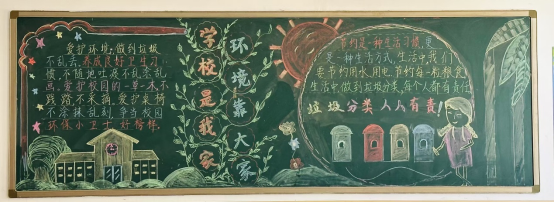 爱护环境,做到垃圾
不乱丢,养成良好卫生习
惯,不随地吐痰不乱涂乱
画,爱护校园的一草一木不
践踏不采摘,爱护桌椅
不涂抹乱刻,争当校园
环保小卫士好榜样。
学校是我家
环境靠大家
节约是一种生活习惯,更
是一种生活方式,生活中,我们
要节约用水,用电,节约每一粒粮食,
生活中,做到垃圾分类,每个人都有责任
垃圾分类 人人有责!